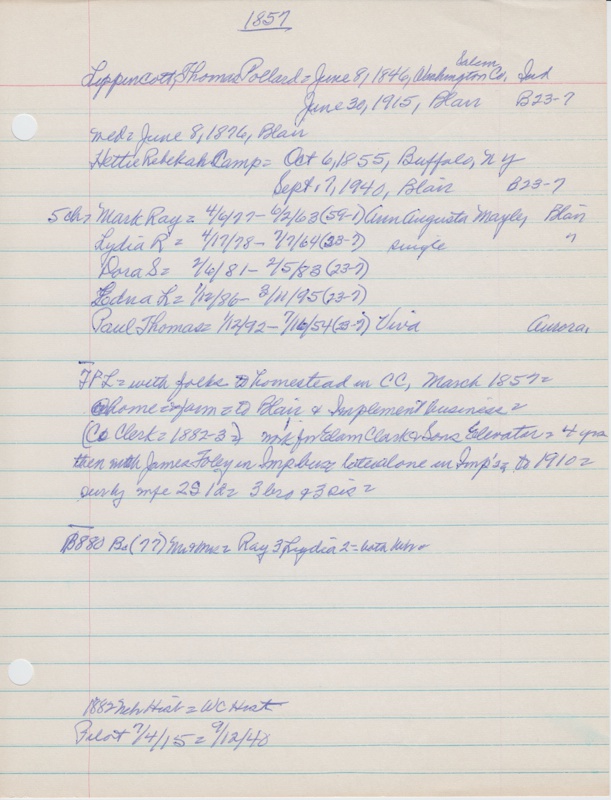 1857
Lippincott, Thomas Pollard = June 8, 1846, Salem Washington Co, Ind
June 30, 1915, Blair B23-7
med = June 8, 1876, Blair
Hettie Rebekah Camp = Oct 6, 1855, Buffalo, NY
Sept. 7, 1940, Blair B23-7
5 ch = Mark Ray = 4/6/77 - 6/2/63 (59-1) Ann Augusta Mayle, Blair
Lydia R = 4/17/78 - 7/7/64 (23-7) single "
Dora S = 2/6/81 - 2/5/83 (23-7)
Edna L = 1/12/86 - 3/11/95 (23-7)
Paul Thomas = 1/12/92 - 7/16/54 (23-7) Viva Aurora,
TPL = with folks to homestead in CC, March 1857 =
@ home = farm = to Blair & Implement business =
(Co Clerk = 1882-3 = ) Elam Clark & Sons Elevator = 4 yrs
then with James Foley in Imp bus, later alone in Imp's, to 1910 =
surby 2S 1d = 3 bro & 3 sis =
B880 Ba (77) = Ray 3 Lydia 2 = both
1882 Neb Hist = WC Hist
Pilot 7/4/15 = 9/12/40